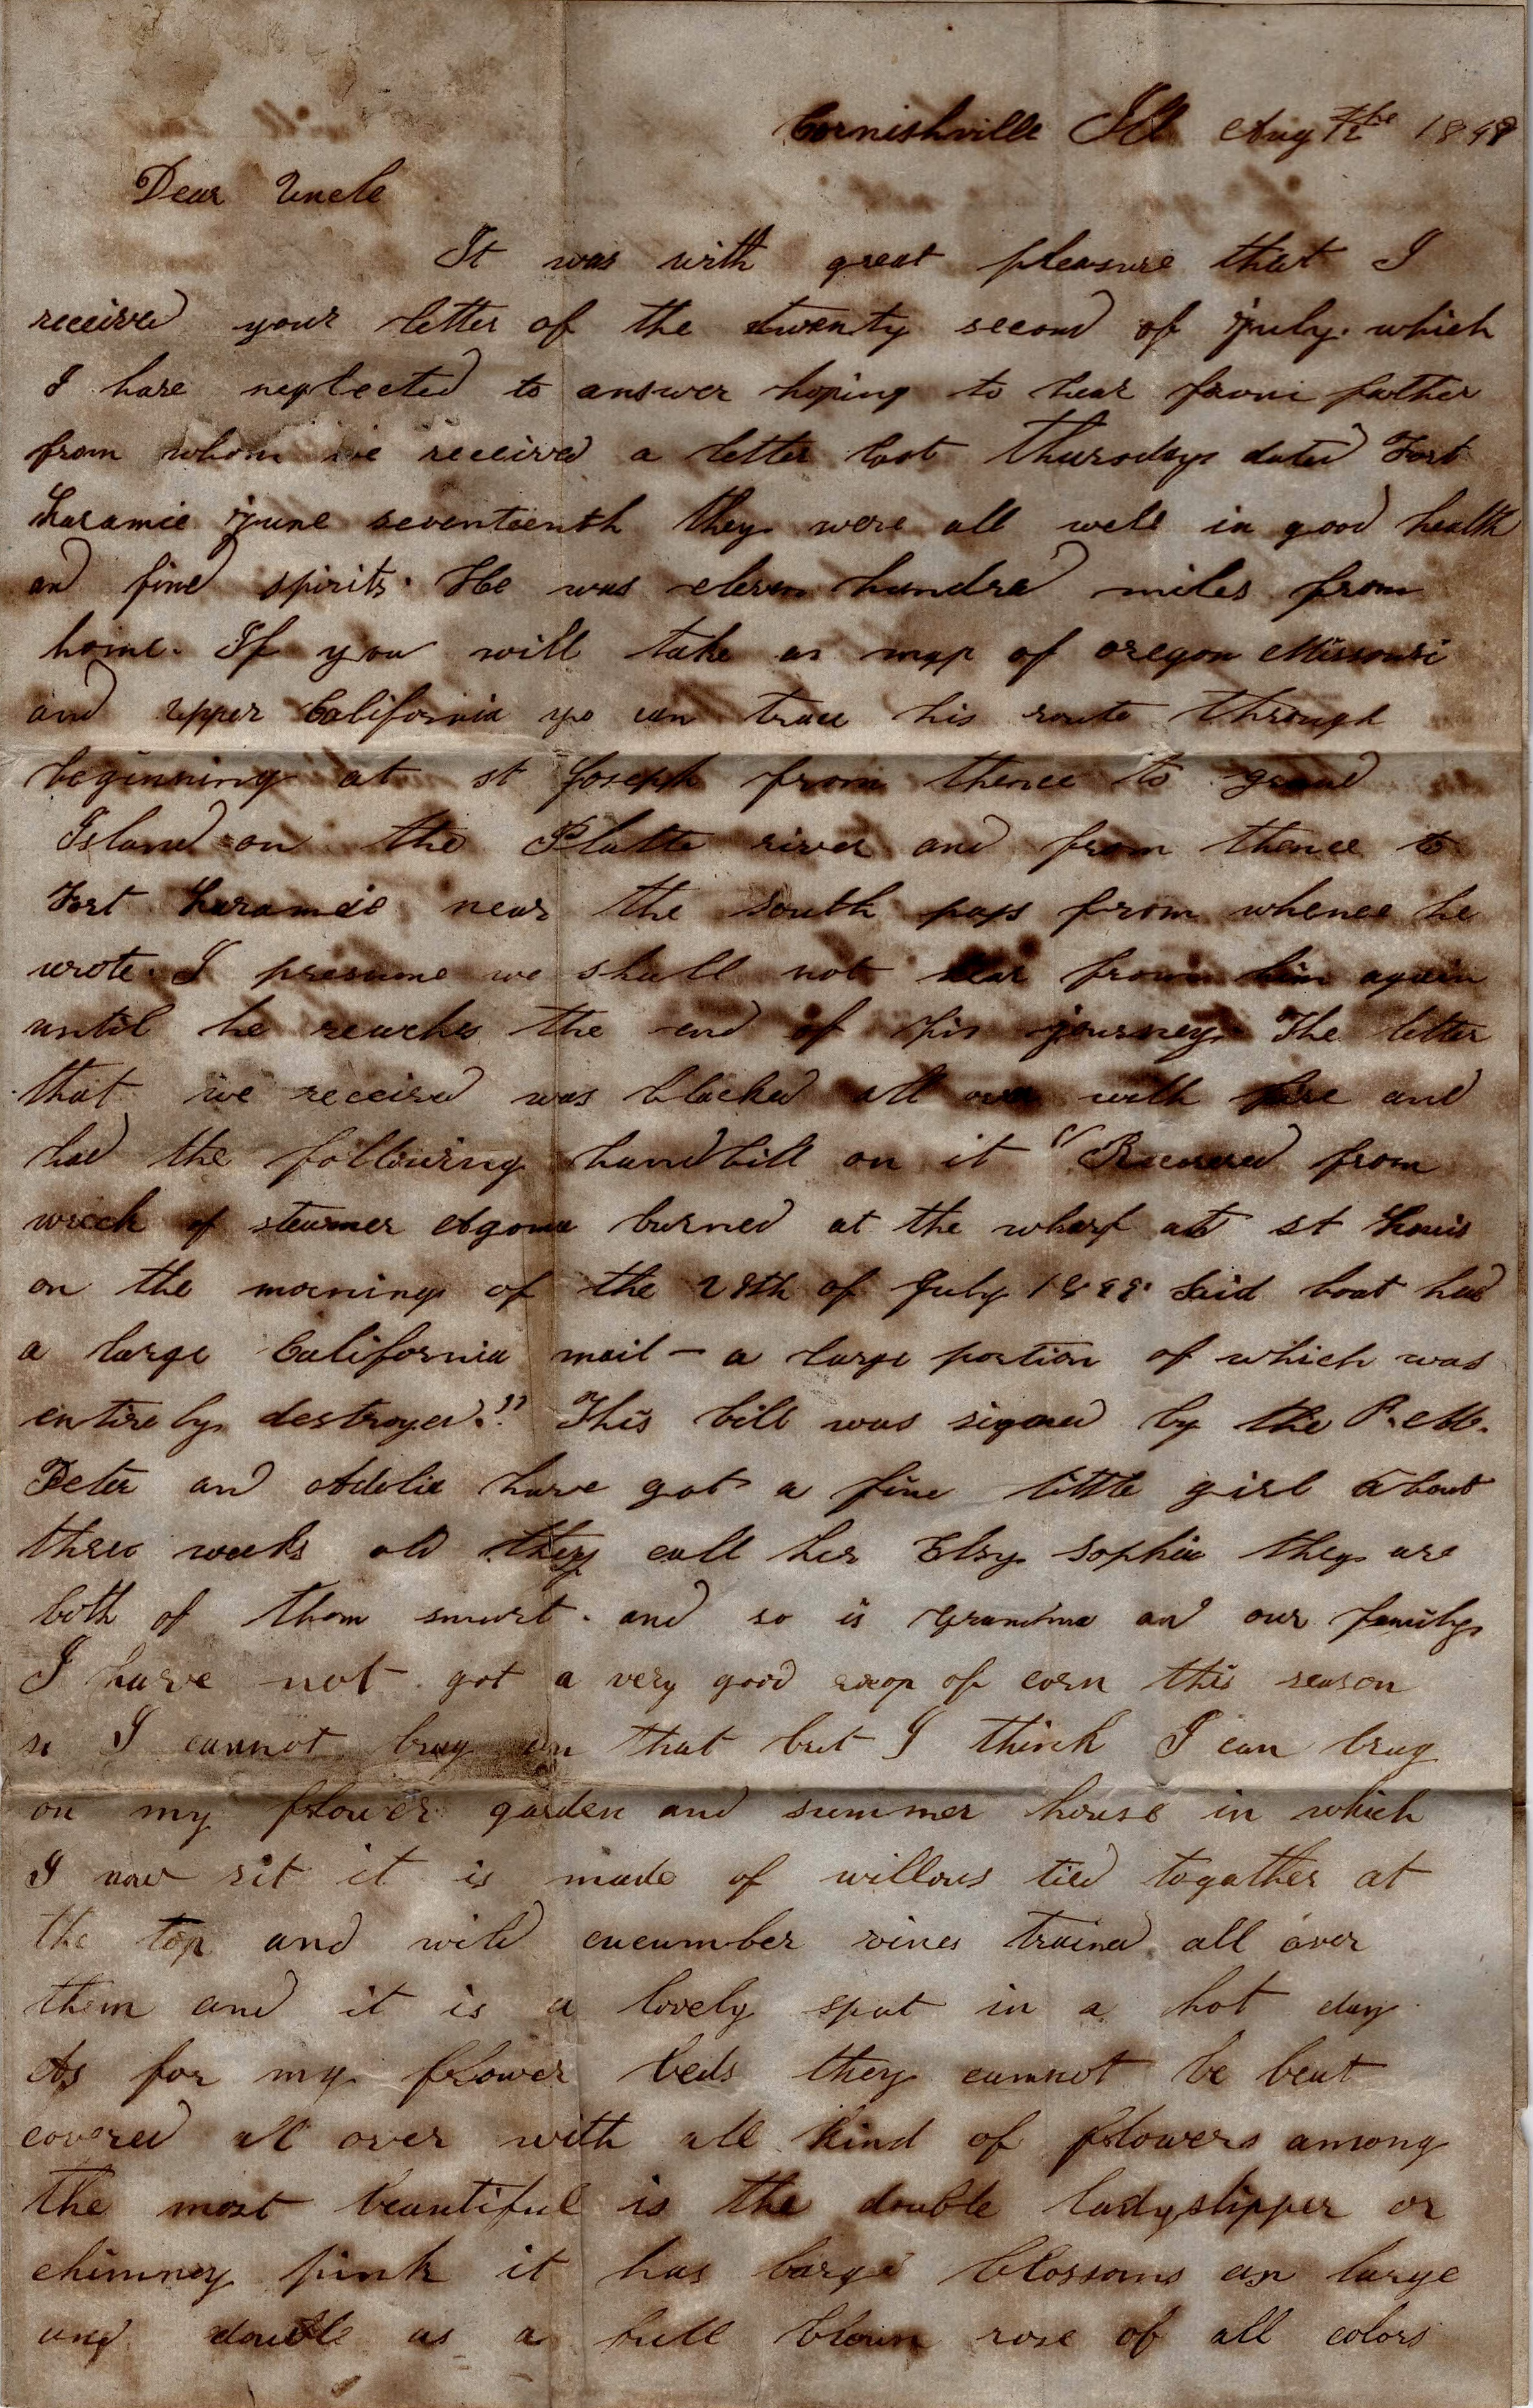 Cornishville Ill Aug 12the 1849
Dear Uncle
It was with great pleasure that I
received your letter of the twenty second of july. which
I have neglected to answer hoping to hear from father
from whom we received a letter last thursday dated Fort
Laramie june seventeenth they were all well in good health
and fine spirits. He was eleven hundred miles from
home. If you will take a map of oregon Missouri
and upper California yo can trace his route through
beginning at st Joseph from thence to grand
Island on the Platte river and from thence to
Fort Laramie near the South pass from whence he
wrote. I presume we shall not hear from him again
until he reaches the end of his journey. The letter
that we received was blacked all over with fire and
had the following handbill on it "Recovered from
wreck of steamer Algoma burned at the wharf at st Louis
on the morning of the 28th of July 1849. Said boat had
a large California mail — a large portion of which was
entirely destroyed." This bill was signed by the P. M.
Peter and Adelia have got a fine little girl about
three weeks old they call her Elsy Sophia they are
both of them smart. and so is grandma and our family
I have not got a very good crop of corn this season
so I cannot brag on that but I think I can brag
on my flower garden and summer house in which
I now sit it is made of willows tied togather at
the top and wild cucumber vines trained all over
them and it is a lovely spot in a hot day
As for my flower beds they cannot be beat
covered all over with all kind of flowers among
the most beautiful is the double ladyslipper or
chimney pink it has large blossoms as large
and double as a full blown rose of all colors